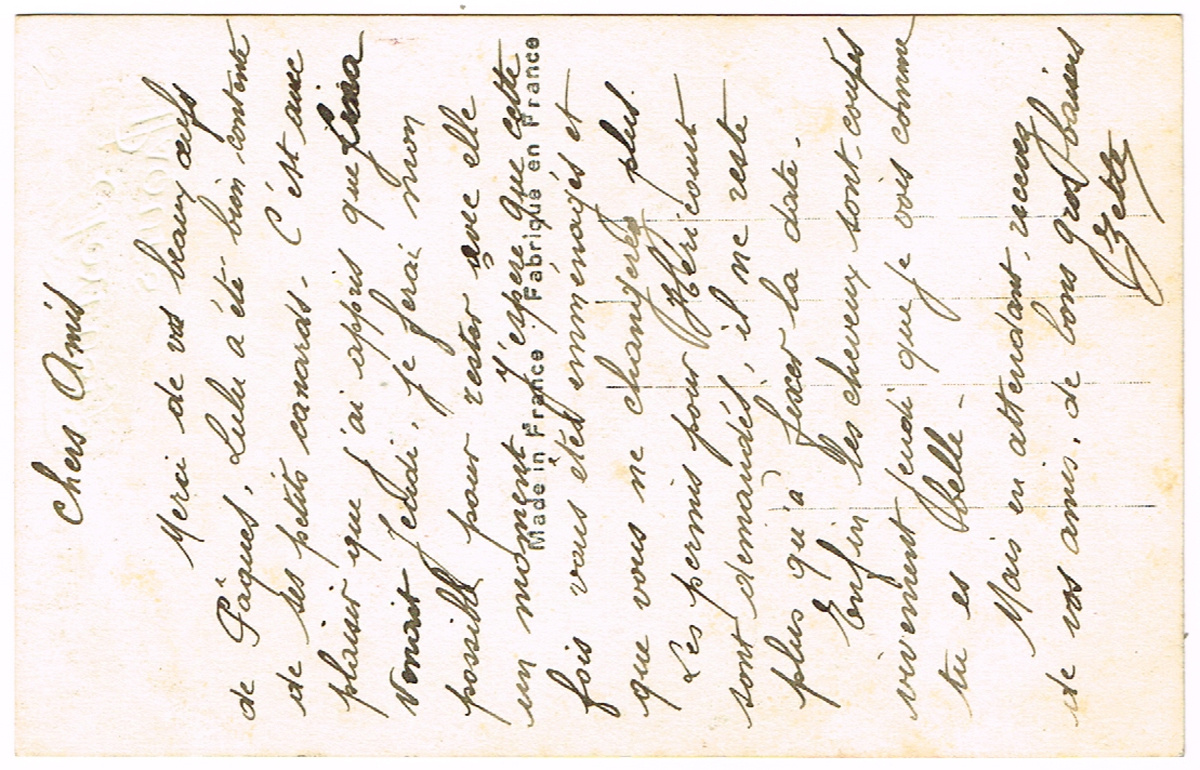 Chers Amis
Merci de vos beaux œufs
de Pâques, Lulu a été bien contente
de ses petits canards - C'est avec
plaisir que j'ai appris que
venait jeudi, je ferai mon
possible pour rester avec elle
un moment. J'espère que cette
Made in France Fabriqué en France
fois vous êtes emménagés et
que vous ne changerez plus.
Les permis pour Héricourt
sont demandés, il ne reste
plus qu'à fixer la date -
Enfin les cheveux sont coupés
vivement jeudi que je vois comme
tu es belle -
Mais en attendant, recevez
de vos amis, de bons gros baisers
Zette